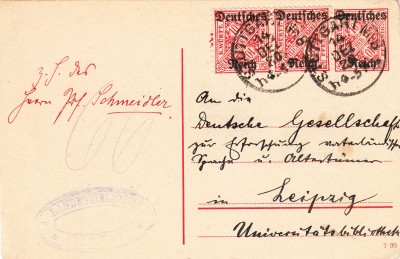 Deutsches Deutsches Deutsches
Reich Reich Reich
STUTTGART
14
DEZ
z. H. des
Herrn Prof. Schmeidler.
An die
Deutsche Gesellschaft
zur Erforschung vaterländischer
Sprache u. Altertümer
in Leipzig
Universitätsbibliothek
7 20